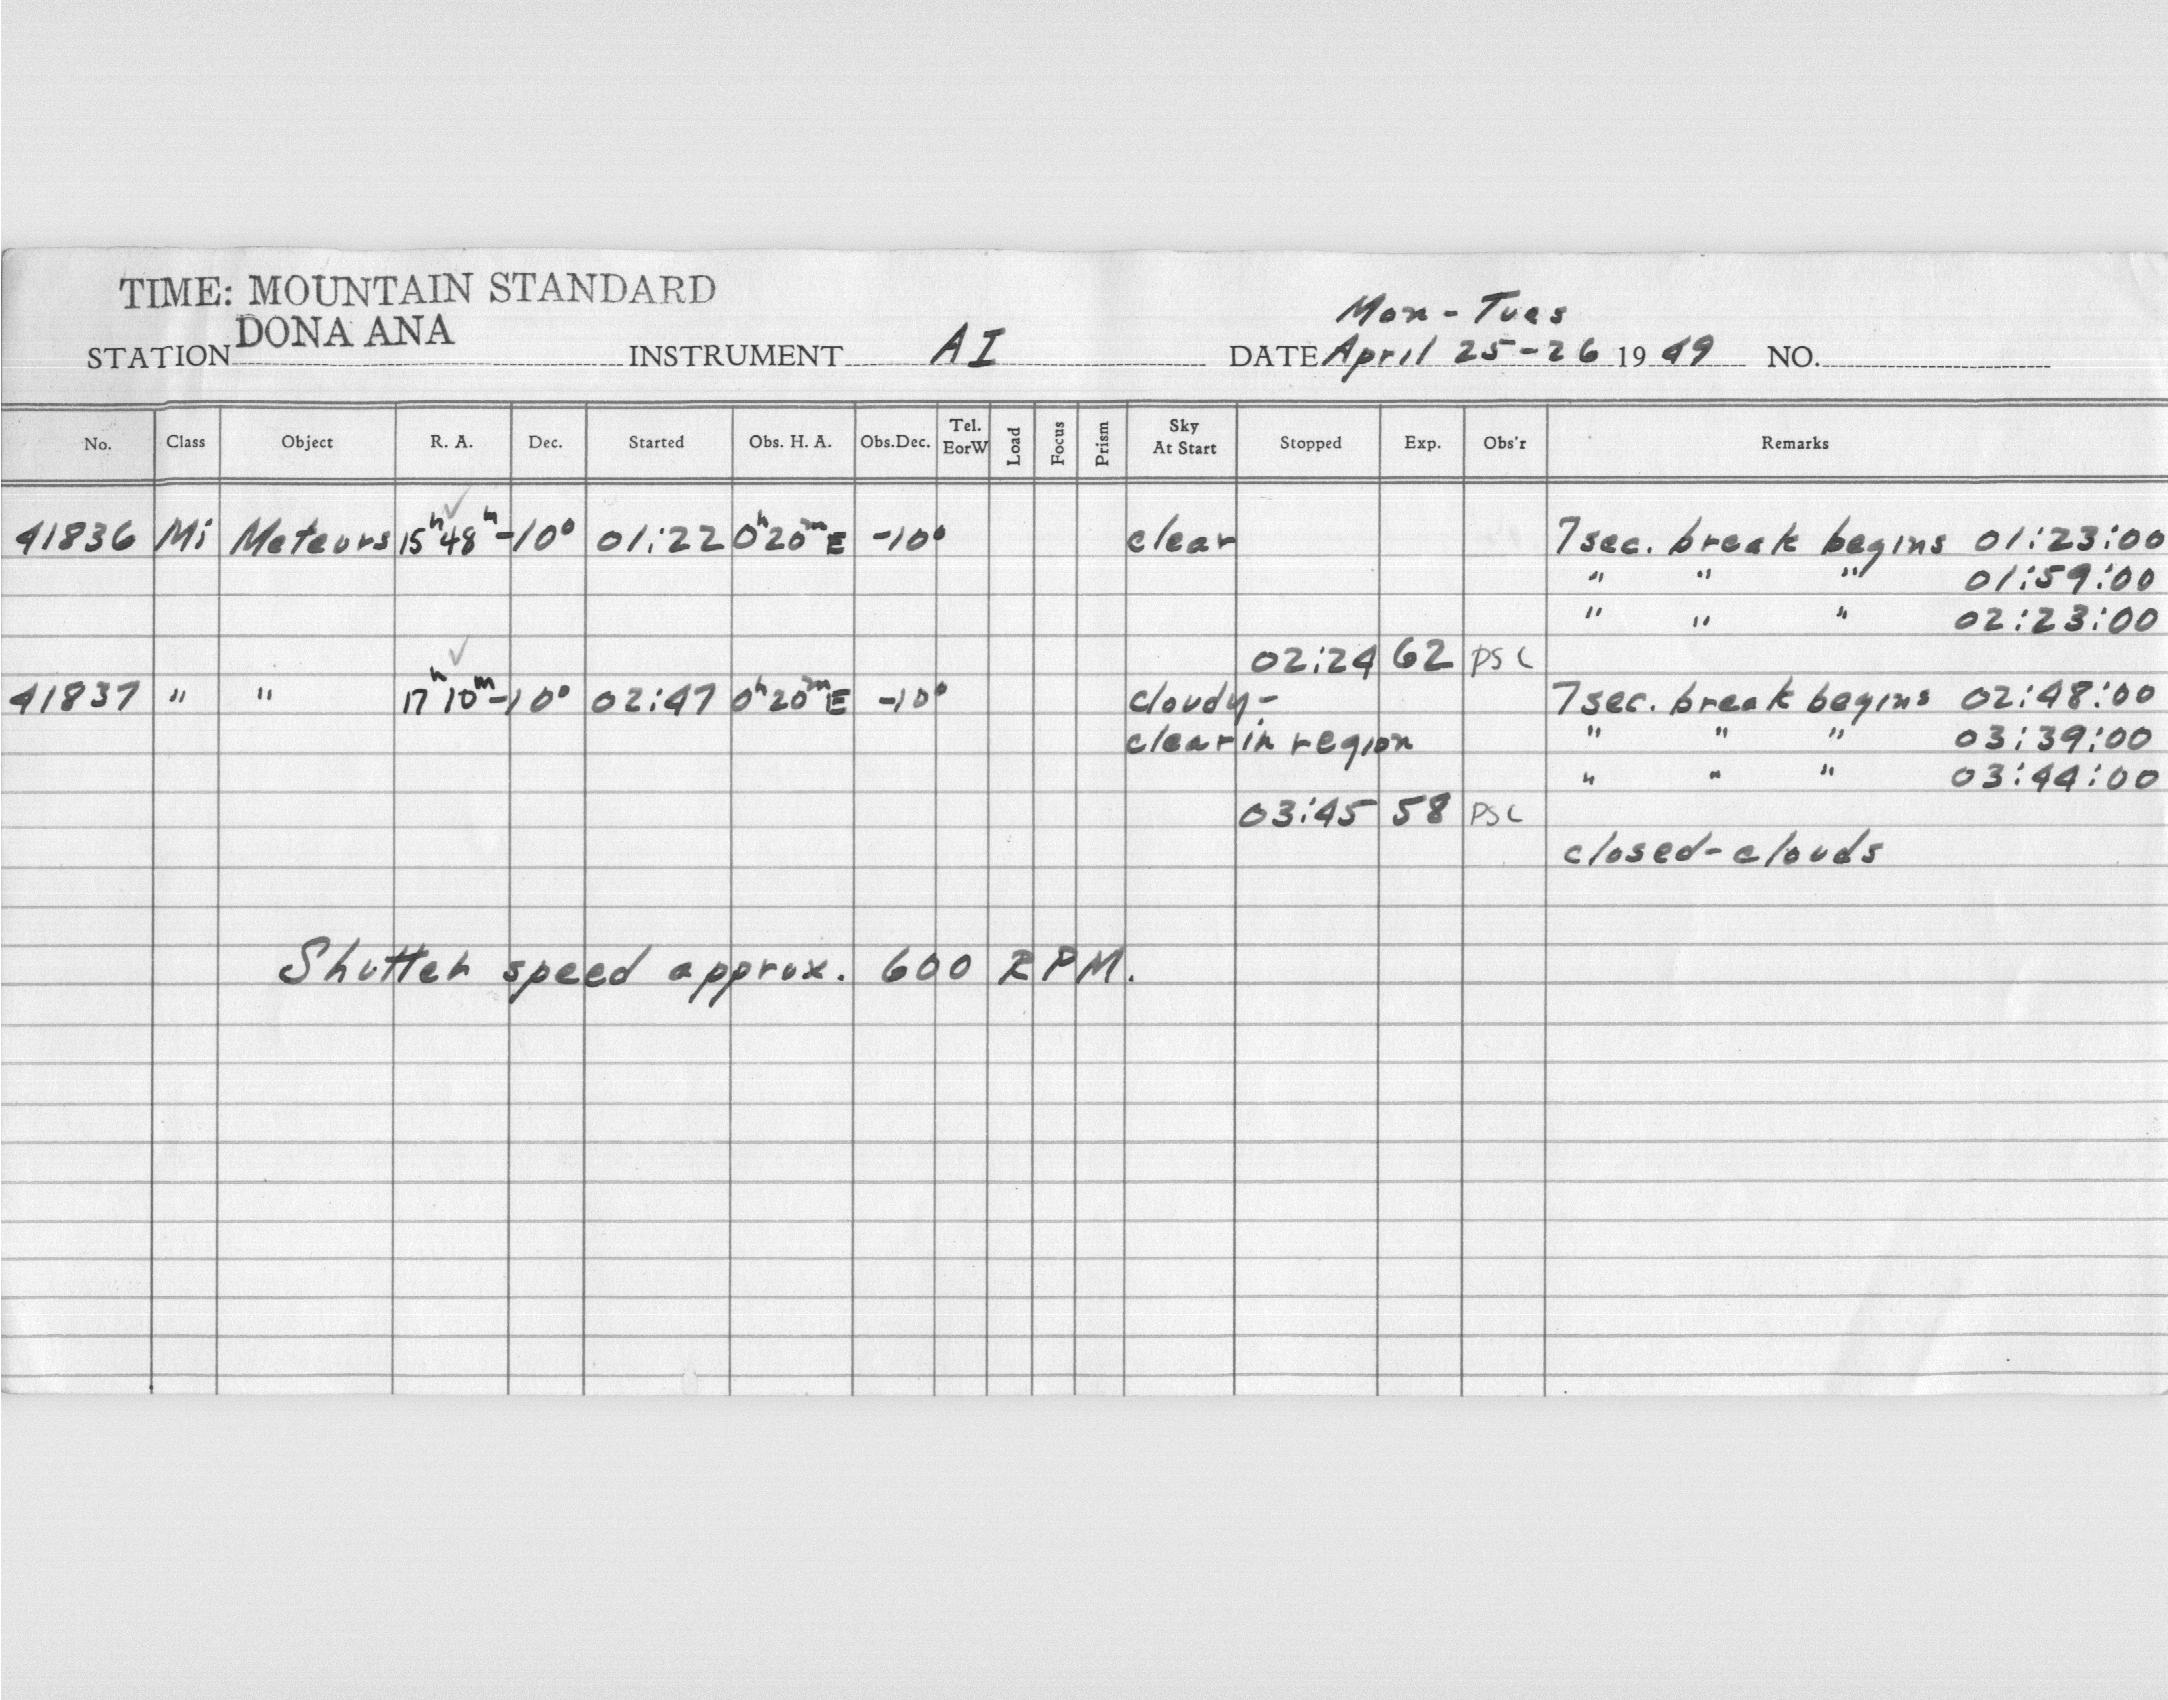 TIME: MOUNTAIN STANDARD
DONA ANA
Mon - Tues
STATION INSTRUMENT AI DATE April 25-26 1949 NO.
No. Class Object R. A. Dec. Started Obs. H. A. Obs.Dec. Tel. EorW Load Focus Prism Sky At Start Stopped Exp. Obs'r Remarks
✓
41836 Mi Meteors 15h 48m -10° 01:22 0h 20m E -10° clear 7sec. break begins 01:23:00
" " " 01:59:00
" " " 02:23:00
✓ 02:24 62 PSC
41837 " " 17h 10m -10° 02:47 0h 20m E -10° cloudy- 7sec. break begins 02:48:00
clear in region " " " 03:39:00
" " " 03:44:00
03:45 58 PSC
closed-clouds
Shutter speed approx. 600 RPM.